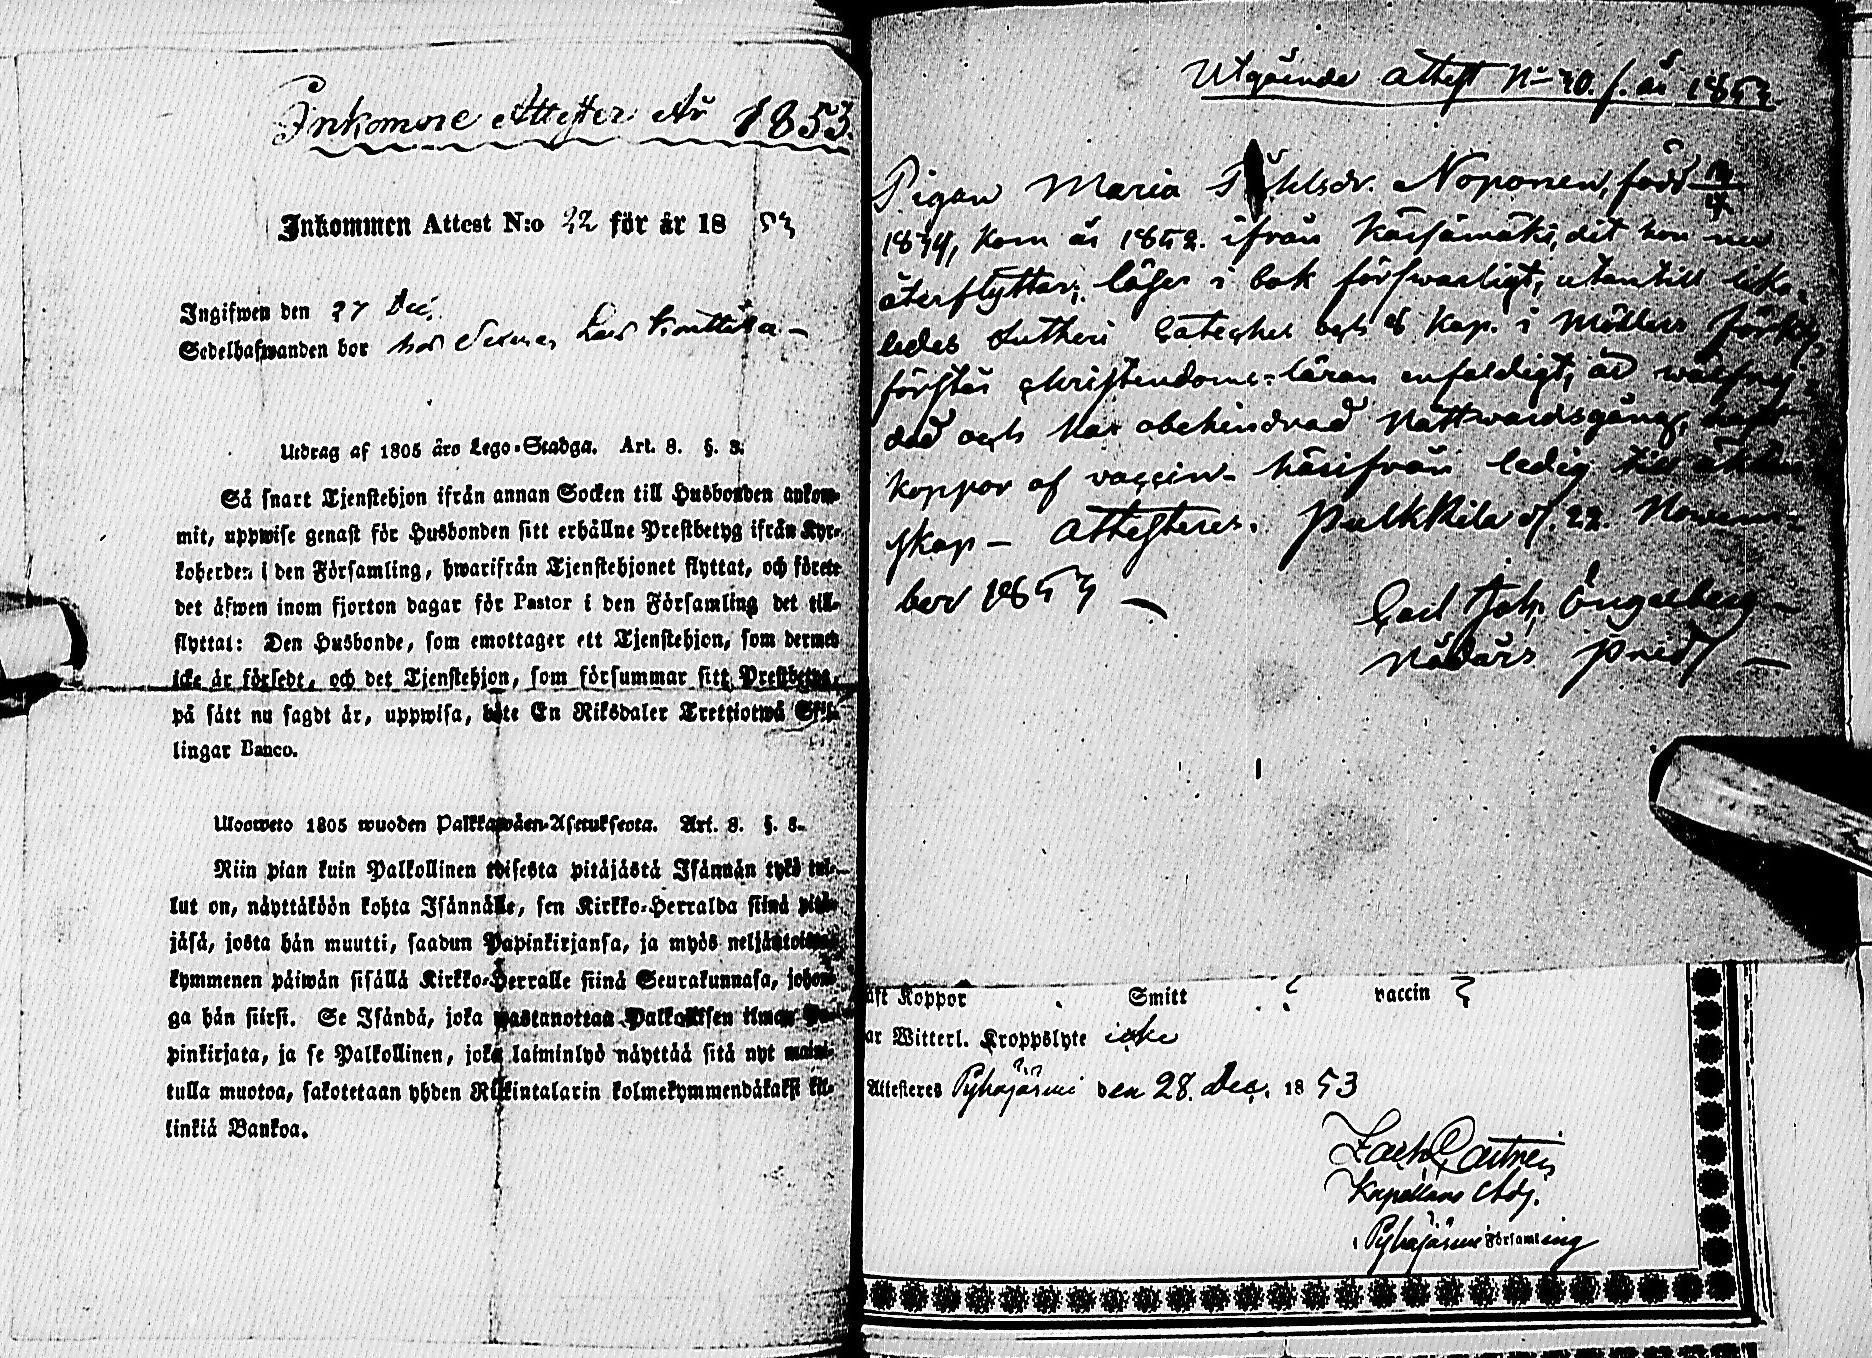 Inkomne Attester År 1853.
Inkommen Attest N:o 22 för år 1853
Ingifwen den 27 Dec.
Sedelhafwanden bor hos
Utdrag af 1805 års Lego-Stadga. Art. 8. §. 8.
Så snart Tjenstehjon ifrån annan Socken till Husbonden ankom-
mit, uppwise genast för Husbonden sitt erhållne Prestbetyg ifrån Kyr-
koherden i den Församling, hwarifrån Tjenstehjonet flyttat, och förete
det äfwen inom fjorton dagar för Pastor i den Församling det till-
flyttat: Den Husbonde, som emottager ett Tjenstehjon, som dermed
icke är försedt, och det Tjenstehjon, som försummar sitt Prestbetyg,
på sätt nu sagdt är, uppwisa, böte En Riksdaler Trettiotwå Skil-
lingar Banco.
Ulosweto 1805 wuoden Palkkawäen-Asetuksesta. Art. 8. §. 8.
Niin pian kuin Palkollinen toisesta pitäjästä Isännän tykö tul-
lut on, näyttäköön kohta Isännälle, sen Kirkko-Herralda siinä pitä-
jäsä, josta hän muutti, saadun Papinkirjansa, ja myös neljäntoista-
kymmenen päiwän sisällä Kirkko-Herralle siinä Seurakunnasa, johon-
ga hän siirsi. Se Isändä, joka wastanottaa Palkollisen ilman Pa-
pinkirjata, ja se Palkollinen, joka laiminlyö näyttää sitä nyt maini-
tulla muotoa, sakotetaan yhden Riikintalarin kolmekymmendäkaksi kil-
linkiä Bankoa.
Utgående Attest No 70. f. år 1853.
Pigan Maria Noponen, född 19
1834, kom år 1852. ifrån Kärsämäki, dit hon nu
återflyttar; läser i bok förswarligt, utantill lika-
ledes Lutheri Cateches och 8 Kap. i Möllers
förstår christendoms-läran enfaldigt; är wälfrej-
dad och har obehindrad Nattwardsgång, haft
koppor af vaccin - härifrån ledig till äkten-
skap - Attesteres. Pulkkila d. 22. Novem-
ber 1853 -
Carl Joh. Engelberg
Nådårs Pred. -
aft Koppor Smitt vaccin
ar Witterl. Kroppslyte icke
Attesteres Pyhäjärwi den 28. Dec. 1853
Zach
Kapellans Adj.
i Pyhäjärwi Församling